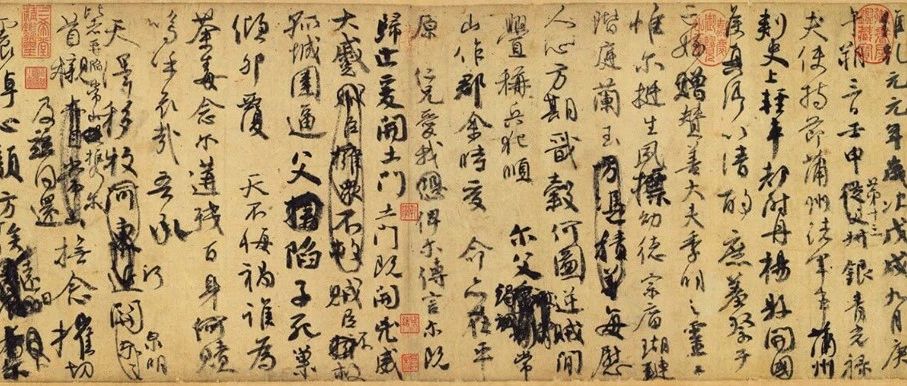 維乾元元年歲次戊戌九月庚
午朔三日壬申從父第十三叔銀青光祿
夫使持節蒲州諸軍事蒲州
刺史上輕車都尉丹楊縣開國
侯真卿以清酌庶羞祭于
亡姪贈贊善大夫季明之靈曰
惟爾挺生夙標幼德宗廟瑚璉
階庭蘭玉方憑積善每慰
人心方期戩穀何圖逆賊間
釁稱兵犯順爾父竭誠常
山作郡余時受命亦在平
原仁兄愛我恐俾爾傳言爾既
歸止爰開土門土門既開凶威
大蹙賊臣擁眾不救賊臣不救
孤城圍逼父擒陷子死巢
傾卵覆天不悔禍誰為
荼毒念爾遘殘百身何贖
嗚乎哀哉吾承
天澤移牧河東近河關泉明
比者再陷常山攜爾
首櫬亦自常山及茲同還撫念摧切
震悼心顏方俟遠日